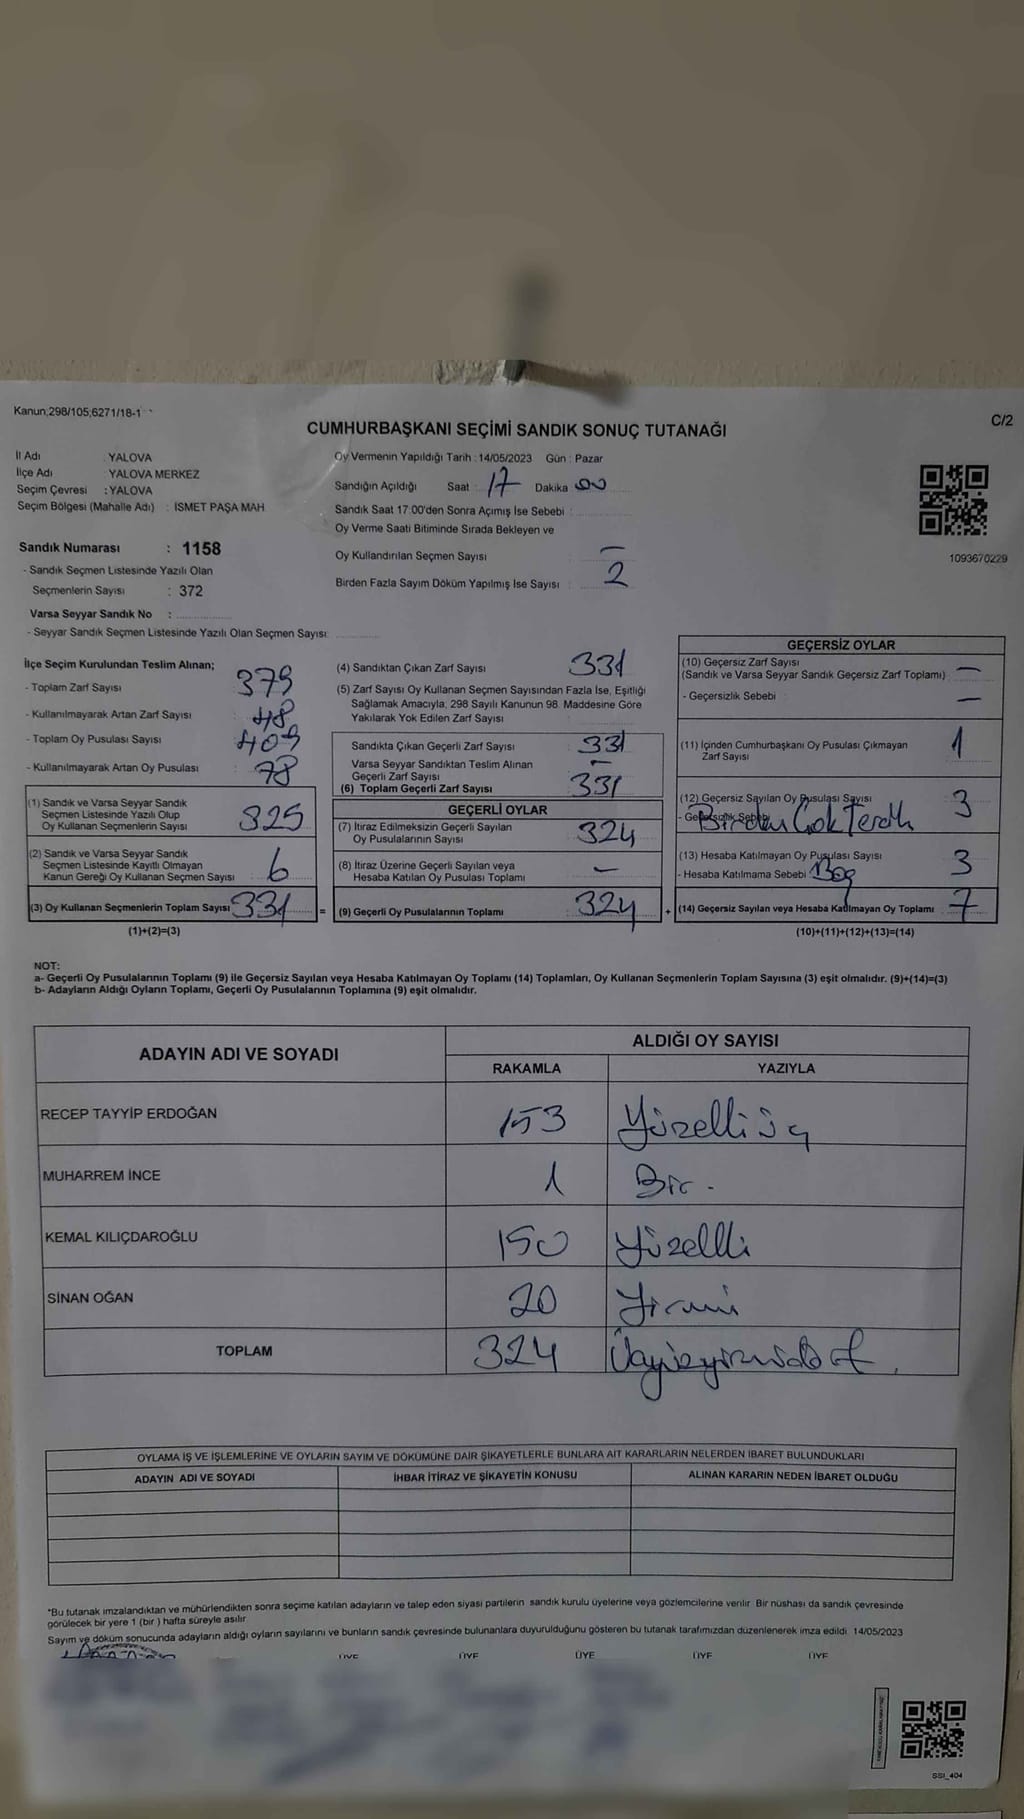 Kanun;298/105;6271/18-1
C/2
CUMHURBAŞKANI SEÇİMİ SANDIK SONUÇ TUTANAĞI
İl Adı : YALOVA
İlçe Adı : YALOVA MERKEZ
Seçim Çevresi : YALOVA
Seçim Bölgesi (Mahalle Adı) : İSMET PAŞA MAH
Sandık Numarası : 1158
- Sandık Seçmen Listesinde Yazılı Olan
Seçmenlerin Sayısı : 372
Varsa Seyyar Sandık No :
- Seyyar Sandık Seçmen Listesinde Yazılı Olan Seçmen Sayısı:
Oy Vermenin Yapıldığı Tarih : 14/05/2023 Gün : Pazar
Sandığın Açıldığı Saat : 17 Dakika 00
Sandık Saat 17:00'den Sonra Açımış İse Sebebi :
Oy Verme Saati Bitiminde Sırada Bekleyen ve
Oy Kullandırılan Seçmen Sayısı : —
Birden Fazla Sayım Döküm Yapılmış İse Sayısı : 2
1093670229
İlçe Seçim Kurulundan Teslim Alınan;
- Toplam Zarf Sayısı : 379
- Kullanılmayarak Artan Zarf Sayısı : 48
- Toplam Oy Pusulası Sayısı : 409
- Kullanılmayarak Artan Oy Pusulası : 78
(1) Sandık ve Varsa Seyyar Sandık
Seçmen Listesinde Yazılı Olup
Oy Kullanan Seçmenlerin Sayısı : 325
(2) Sandık ve Varsa Seyyar Sandık
Seçmen Listesinde Kayıtlı Olmayan
Kanun Gereği Oy Kullanan Seçmen Sayısı : 6
(3) Oy Kullanan Seçmenlerin Toplam Sayısı : 331
(1)+(2)=(3)
=
(4) Sandıktan Çıkan Zarf Sayısı : 331
(5) Zarf Sayısı Oy Kullanan Seçmen Sayısından Fazla İse, Eşitliği
Sağlamak Amacıyla, 298 Sayılı Kanunun 98. Maddesine Göre
Yakılarak Yok Edilen Zarf Sayısı :
Sandıkta Çıkan Geçerli Zarf Sayısı : 331
Varsa Seyyar Sandıktan Teslim Alınan
Geçerli Zarf Sayısı : —
(6) Toplam Geçerli Zarf Sayısı : 331
GEÇERLİ OYLAR
(7) İtiraz Edilmeksizin Geçerli Sayılan
Oy Pusulalarının Sayısı : 324
(8) İtiraz Üzerine Geçerli Sayılan veya
Hesaba Katılan Oy Pusulası Toplamı : —
(9) Geçerli Oy Pusulalarının Toplamı : 324
+
GEÇERSİZ OYLAR
(10) Geçersiz Zarf Sayısı
(Sandık ve Varsa Seyyar Sandık Geçersiz Zarf Toplamı) : —
- Geçersizlik Sebebi : —
(11) İçinden Cumhurbaşkanı Oy Pusulası Çıkmayan
Zarf Sayısı : 1
(12) Geçersiz Sayılan Oy Pusulası Sayısı : 3
- Geçersizlik Sebebi : Birden Çok Tercih
(13) Hesaba Katılmayan Oy Pusulası Sayısı : 3
- Hesaba Katılmama Sebebi : Boş
(14) Geçersiz Sayılan veya Hesaba Katılmayan Oy Toplamı : 7
(10)+(11)+(12)+(13)=(14)
NOT:
a- Geçerli Oy Pusulalarının Toplamı (9) ile Geçersiz Sayılan veya Hesaba Katılmayan Oy Toplamı (14) Toplamları, Oy Kullanan Seçmenlerin Toplam Sayısına (3) eşit olmalıdır. (9)+(14)=(3)
b- Adayların Aldığı Oyların Toplamı, Geçerli Oy Pusulalarının Toplamına (9) eşit olmalıdır.
ADAYIN ADI VE SOYADI
ALDIĞI OY SAYISI
RAKAMLA YAZIYLA
RECEP TAYYİP ERDOĞAN 153 Yüzelliüç
MUHARREM İNCE 1 Bir.
KEMAL KILIÇDAROĞLU 150 Yüzelli
SİNAN OĞAN 20 Yirmi
TOPLAM 324 Üçyüzyirmidört.
OYLAMA İŞ VE İŞLEMLERİNE VE OYLARIN SAYIM VE DÖKÜMÜNE DAİR ŞİKAYETLERLE BUNLARA AİT KARARLARIN NELERDEN İBARET BULUNDUKLARI
ADAYIN ADI VE SOYADI İHBAR İTİRAZ VE ŞİKAYETİN KONUSU ALINAN KARARIN NEDEN İBARET OLDUĞU
*Bu tutanak imzalandıktan ve mühürlendikten sonra seçime katılan adayların ve talep eden siyasi partilerin sandık kurulu üyelerine veya gözlemcilerine verilir. Bir nüshası da sandık çevresinde
görülecek bir yere 1 (bir) hafta süreyle asılır
Sayım ve döküm sonucunda adayların aldığı oyların sayılarını ve bunların sandık çevresinde bulunanlara duyurulduğunu gösteren bu tutanak tarafımızdan düzenlenerek imza edildi. 14/05/2023
ÜYE ÜYE ÜYE ÜYE ÜYE
SSI_404